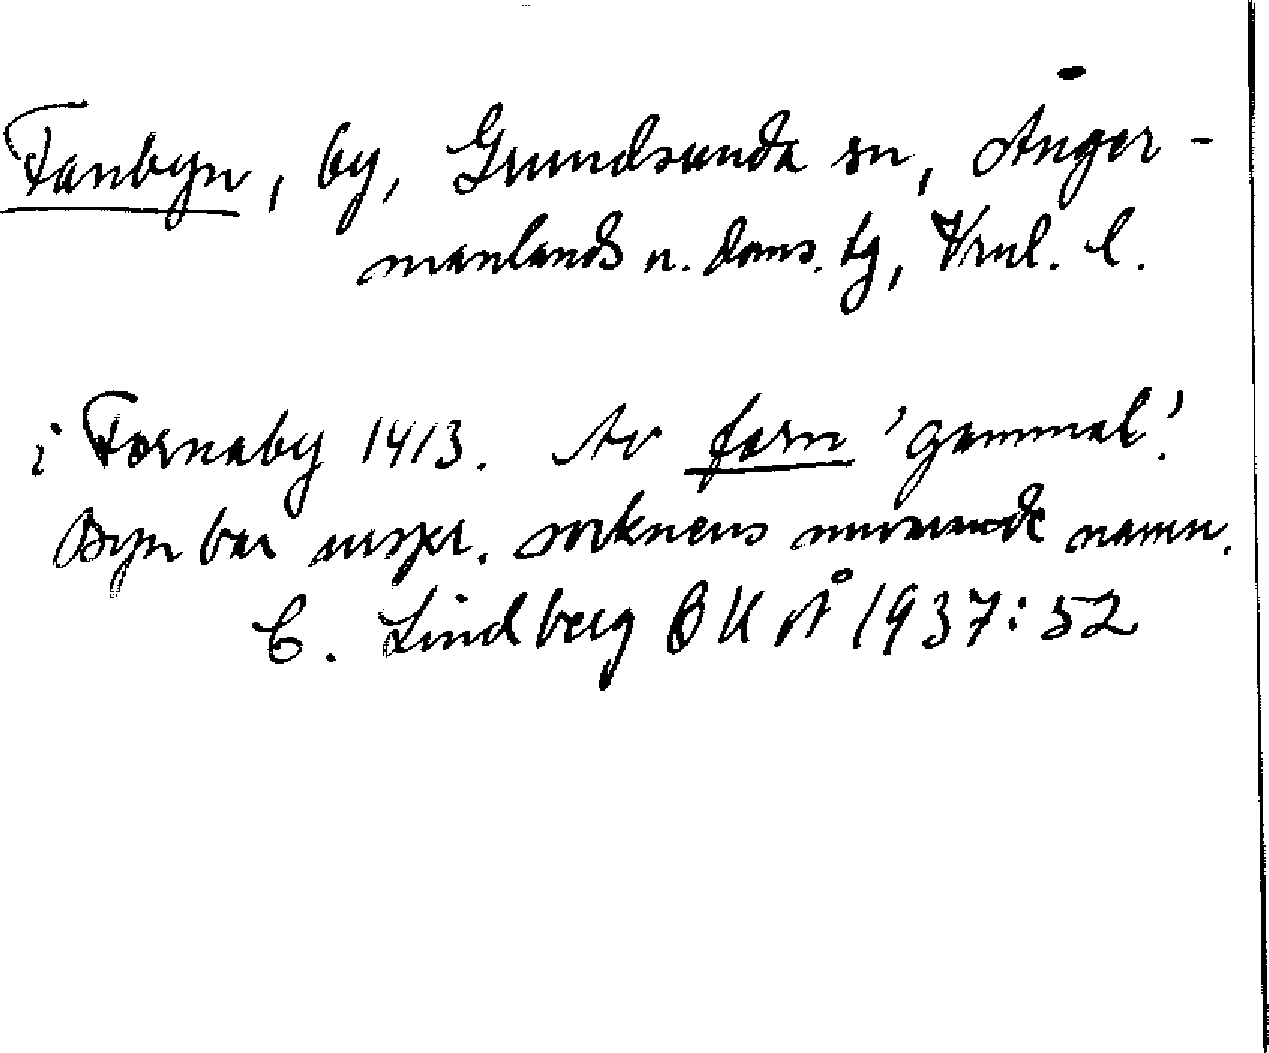 Fanbyn, by, Grundsunda sn, Ånger-
manlands n. doms. tg, Vrnl. l.
i Fornaby 1413. Av forn 'gammal'.
Byn bar urspr. socknens nuvarande namn.
C. Lindberg BUÅ 1937:52